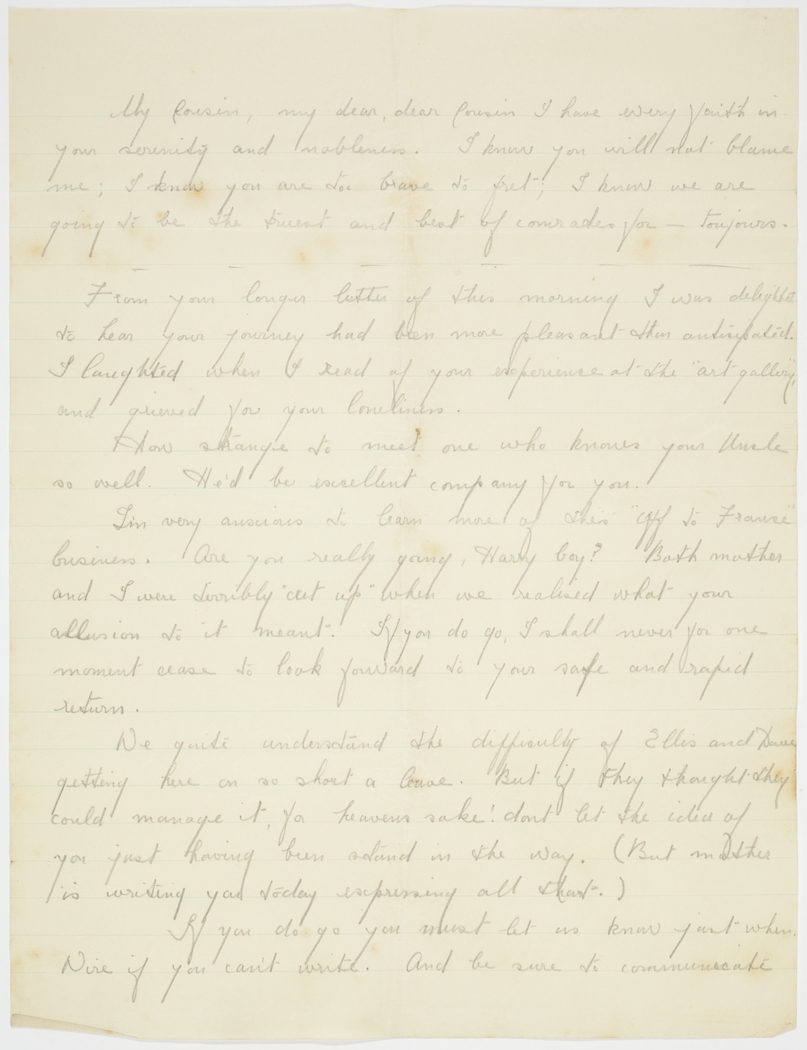 My Cousin, my dear, dear Cousin I have every faith in
your serenity and nobleness. I know you will not blame
me; I know you are too brave to fret; I know we are
going to be the truest and best of comrades for — toujours.
From your longer letter of this morning I was delighted
to hear your journey had been more pleasant than anticipated.
I laughted when I read of your experience at the "art gallery",
and grieved for your loneliness.
How strange to meet one who knows your Uncle
so well. He'd be excellent company for you.
I'm very anxious to learn more of this "off to France"
business. Are you really going, Harry boy? Both mother
and I were terribly "cut up" when we realised what your
allusion to it meant. If you do go, I shall never for one
moment cease to look forward to your safe and rapid
return.
We quite understand the difficulty of Ellis and Dave
getting here on so short a leave. But if they thought they
could manage it, for heavens sake! dont let the idea of
you just having been stand in the way. (But mother
is writing you today expressing all that.)
If you do go you must let us know just when.
Wire if you can't write. And be sure to communicate